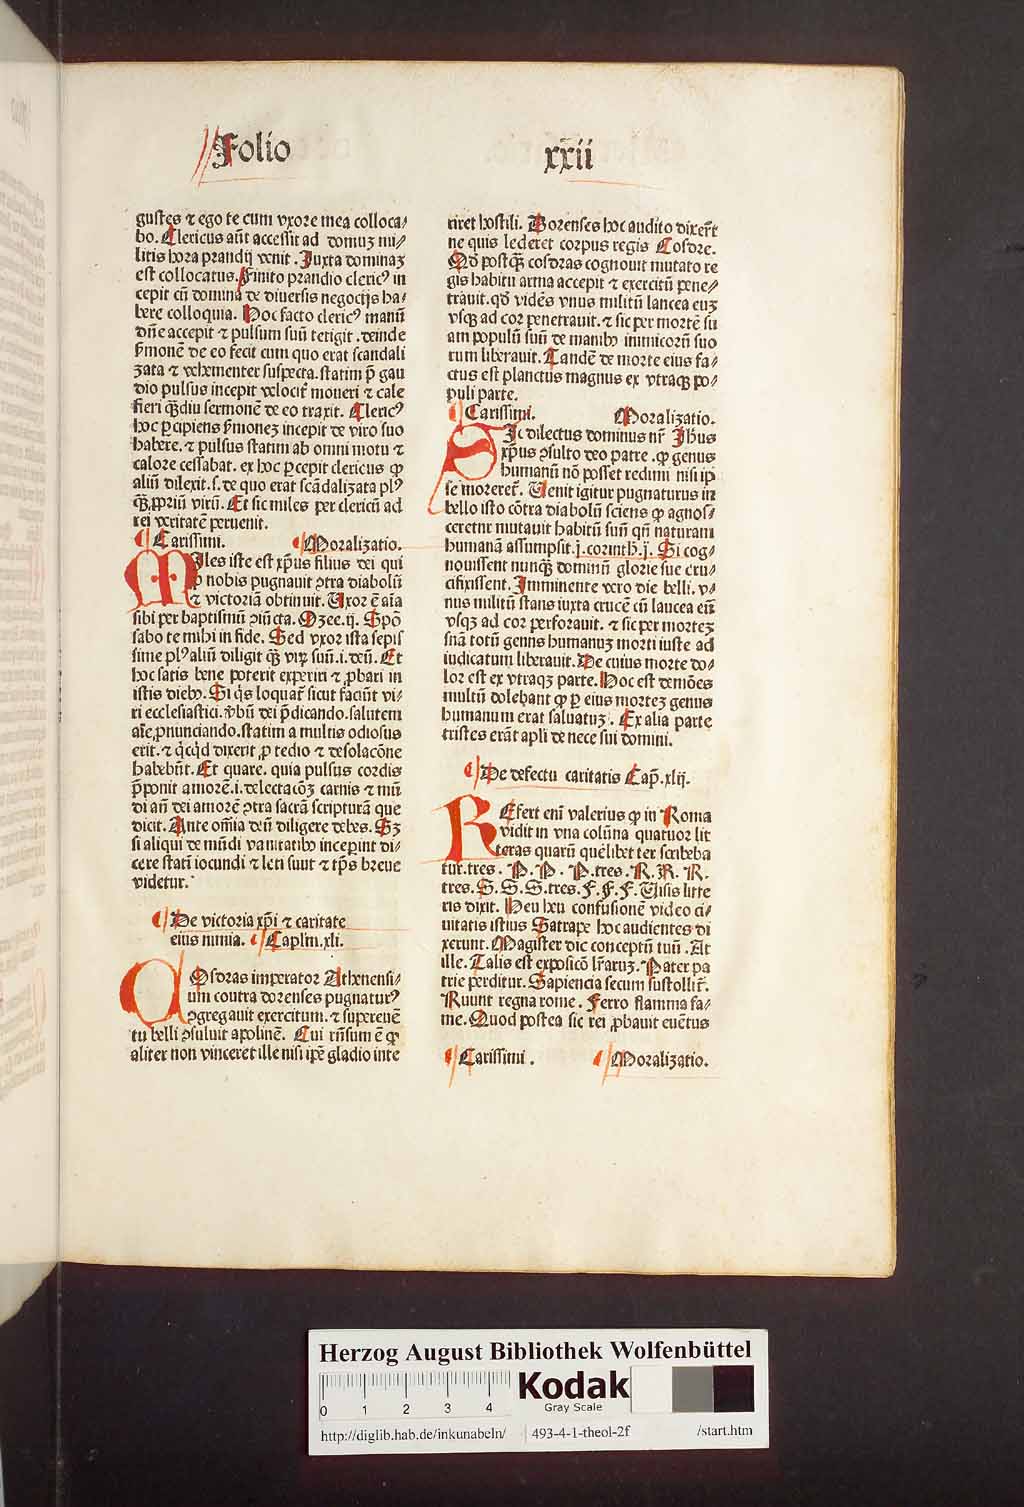 Folio
xxii
gustes ⁊ ego te cum vxore mea colloca⸗
bo. Clericus aūt accessit ad domuʒ mi⸗
litis hora prandij venit. Juxta dominaʒ
est collocatus. Finito prandio cleric⁹ in
cepit cū domina de diuersis negocijs ha⸗
bere colloquia. Hoc facto cleric⁹ manū
dn̄e accepit ⁊ pulsum suū tetigit. deinde
s̄monē de eo fecit cum quo erat scandali
zata ⁊ vehementer suspecta. statim p̄ gau
dio pulsus incepit velocit̄ moueri ⁊ cale
fieri qͣ̄diu sermonē de eo traxit. Cleric⁹
hoc ꝑcipiens s̄monez incepit de viro suo
habere. ⁊ pulsus statim ab omni motu ⁊
calore cessabat. ex hoc ꝑcepit clericus ꝙ
aliū dilexit .s. de quo erat scādalizata pl⁹
qͣ̄ ꝓpriū virū. Et sic miles per clericū ad
rei veritatē peruenit.
Carissimi. Moralizatio.
MJles iste est xp̄us filius dei qui
ꝓ nobis pugnauit ꝯtra diabolū
⁊ victoriā obtinuit. Uxor ē aīa
sibi per baptismū ꝯiūcta. Ozee.ij. Spō
sabo te mihi in fide. Sed vxor ista sepis
sime pl⁹ aliū diligit qͣ̄ viꝝ suū .i. deū. Et
hoc satis bene poterit experiri ⁊ ꝓbari in
istis dieb⁹. Si qͥs loquat̄ sicut faciūt vi⸗
ri ecclesiastici. v̄bū dei p̄dicando. salutem
aīe ꝓnunciando. statim a multis odiosus
erit. ⁊ qͥcqͥd dixerit ꝓ tedio ⁊ desolacōne
habebūt. Et quare. quia pulsus cordis
p̄ponit amorē .i. delectacōʒ carnis ⁊ mū
di an̄ dei amorē ꝯtra sacrā scripturā que
dicit. Ante om̄ia deū diligere debes. Sʒ
si aliqui de mūdi vanitatib⁹ inceperint di⸗
cere statī iocundi ⁊ leti sunt ⁊ tp̄s breue
videtur.
De victoria xp̄i ⁊ caritate
eius nimia. Caplm̄.xli.
COsdras imperator Athenensi⸗
um contra dorenses pugnatur⁹
ꝯgregauit exercitum. ⁊ superuenē
tu belli ꝯsuluit apolinē. Cui rn̄sum ē ꝙ
aliter non vinceret ille nisi ip̄e gladio inte
riret hostili. Dorenses hoc audito dixer̄t
ne quis lederet corpus regis Cosdre.
Qd̄ postqͣ̄ cosdras cognouit mutato re
gis habitu arma accepit ⁊ exercitū pene⸗
trauit. qd̄ vidēs vnus militū lancea euʒ
vsqʒ ad cor penetrauit. ⁊ sic per mortē su
am populū suū de manib⁹ inimicorū suo
rum liberauit. Tandē de morte eius fa⸗
ctus est planctus magnus ex vtraqʒ po⸗
puli parte.
Carissimi. Moralizatio.
SJc dilectus dominus nr̄ Jhūs
xp̄us ꝯsulto deo patre. ꝙ genus
humanū nō posset redimi nisi ip̄
se moreret̄. Uenit igitur pugnaturus in
bello isto cōtra diabolū sciens ꝙ agnos⸗
ceretur mutauit habitū suū qn̄ naturam
humanā assumpsit .j.corinth.j. Si cog⸗
nouissent nunqͣ̄ dominū glorie sue cru⸗
cifixissent. Jmminente vero die belli. v⸗
nus militū stans iuxta crucē cū lancea eū
vsqʒ ad cor perforauit. ⁊ sic per morteʒ
suā totū genus humanuʒ morti iuste ad
iudicatum liberauit. De cuius morte do⸗
lor est ex vtraqʒ parte. Hoc est demōes
multū dolebant ꝙ ꝑ eius morteʒ genus
humanum erat saluatuʒ. Ex alia parte
tristes erāt apli de nece sui domini.
De defectu caritatis Cap̄.xlij.
REfert eni̅ valerius ꝙ in Roma
vidit in vna colūna quatuor lit
teras quarū quelibet ter scribeba
tur. tres. P. P. P. tres. R. R. R.
tres. S. S. S. tres. F. F. F. Uisis litte
ris dixit. Heu heu confusionē video ci⸗
uitatis istius Satrape hoc audientes di
xerunt. Magister dic conceptū tuū. At
ille. Talis est exposicō lr̄aruʒ. Pater pa
trie perditur. Sapiencia secum sustollit̄.
Ruunt regna rome. Ferro flamma fa⸗
me. Quod postea sic rei ꝓbauit euētus
Carissimi. Moralizatio.
Herzog August Bibliothek Wolfenbüttel
0 1 2 3 4
Kodak
Gray Scale
http://diglib.hab.de/inkunabeln/ 493-4-1-theol-2f /start.htm